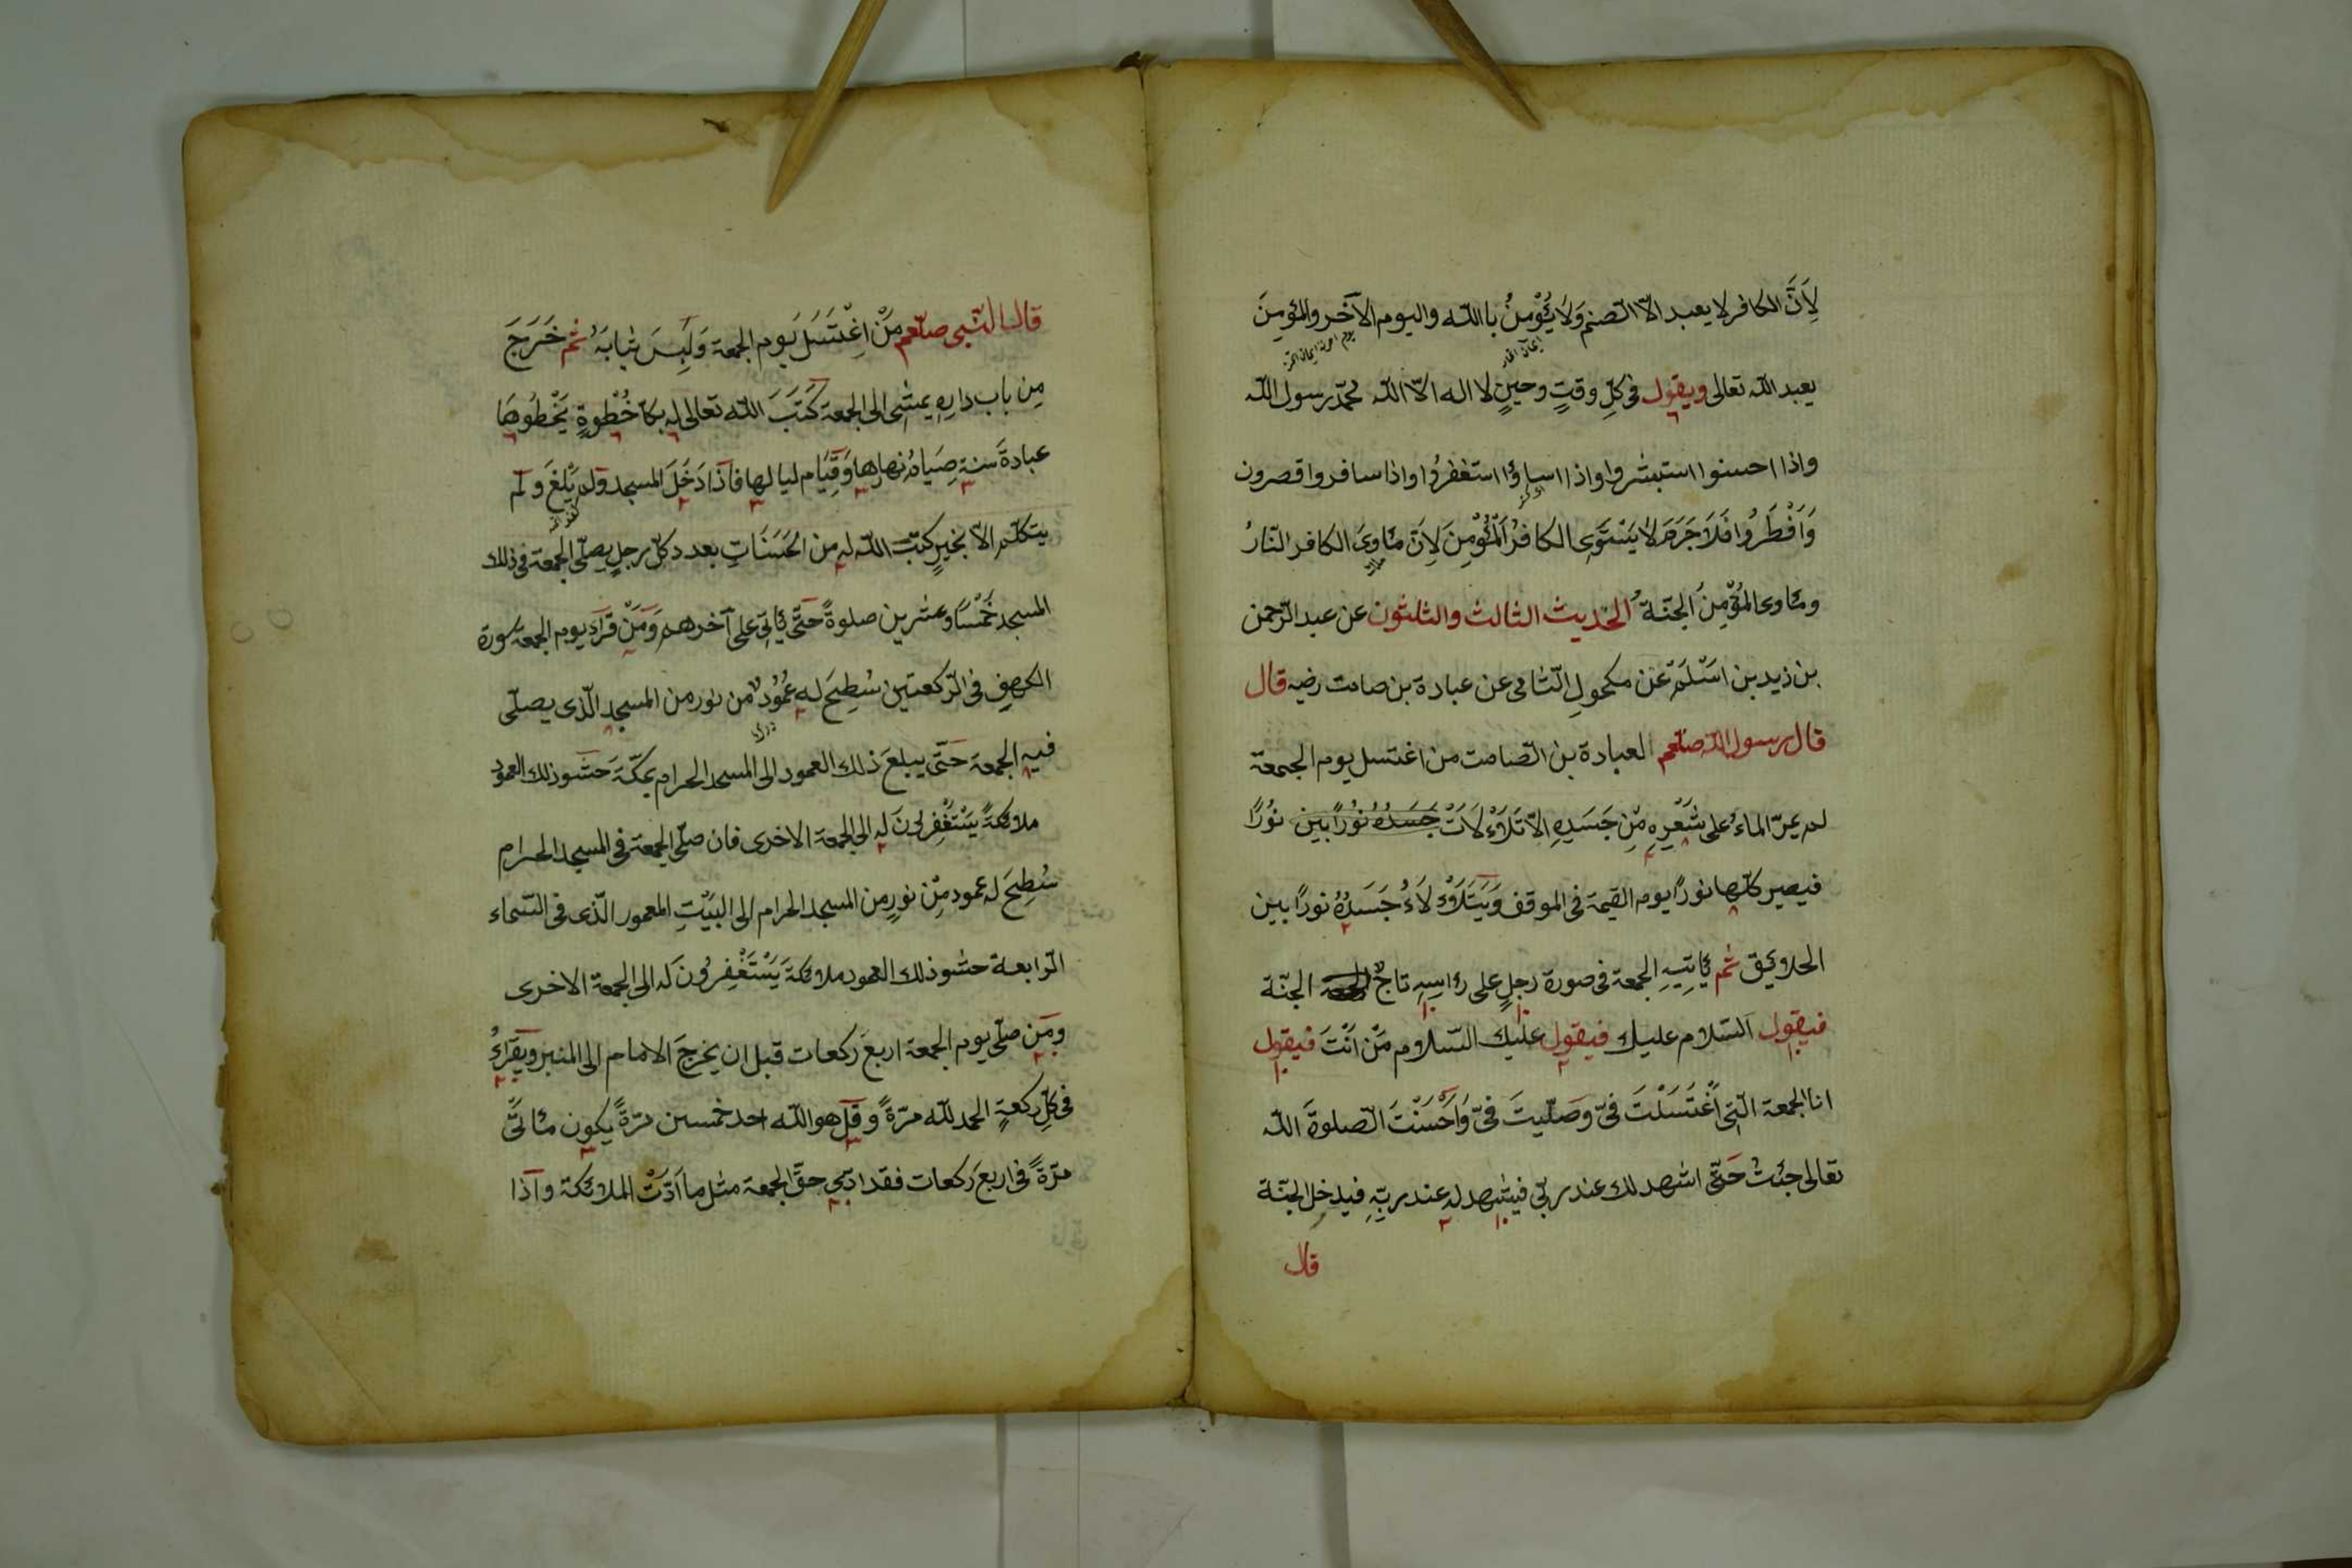 لِاَنَّ الكافر لا يعبد الّا الصّنم وَلَا يُؤْمِنُ باالله واليوم الآخر والمؤمِنَ
يعبد الله تعالى ويقول فى كلّ وقتٍ وحينٍ لا اله الّا الله محمّد رسول الله
واذا احسنوا استبشروا واذا اساؤا استغفرُوا واذا سافروا قصرون
وَاَفْطَرُوا فَلَا جَرَمَ لَا يَسْتَوِى الكافرُ اَلْمُؤْمِنَ لِاَنّ مأوىَ الكافر النّارُ
ومأوى المؤمِنُ الجنّة الحديث الثالث والثلثون عن عبد الرّحمن
بن زيد بن اَسْلَمَ عَنْ مكحولِ الشّامى عن عبادة بن صامت رضيه قال
قال رسول الله صلّعم العبادة بن الصّامت من اغتسل يوم الجمعة
لم يمرّ الماءُ على شَعْرِهِ مِّن جَسَدِهِ الّا تَلَاْءْلَاَتْ جَسَدُهُ نُورًا بين نُورًا
فيصير كلّها نورًا يوم القيمة فى الموقف وَيَتَلَاْءْلَاءُ جَسَدُهُ نورًا بين
الخلايق ثم يأتِيهِ الجمعة فى صورة رجلٍ على رأسِهِ تاجٌ الجنّة
فيقول السّلام عليك فيقول عليك السّلام مَنْ اَنْتَ فيقول
انا الجمعة الّتى اغْتَسَلْتَ فىّ وصَلّيتَ فىّ وَاَحْسَنْتَ الصّلوةَ الله
تعالى جئتُ حَتّى اشهد لك عند ربّى فيشهد له عند ربِّهِ فيدخل الجنّة
قال
قال النّبى صلّعم مَنْ اِغْتَسَلَ يَوم الجمعة وَلَبِسَ ثيابَهُ ثم خَرَجَ
مِن باب دارِهِ يمشِى الى الجمعة كَتَبَ الله تعالى له بكلّ خُطْوةٍ يَخْطُوهَا
عبادةَ سنةٍ صِيَامُ نهارِها وَقِيَام ليالها فاذَا دَخَلَ المسجد ولم يَلْغَ ولم
يتكلّم الّا بخيرٍ كتب الله له من الحَسَنَاتِ بعدد كلّ رجلٍ يصلّى الجمعة فى ذلك
المسجد خَمْسًا وعشرين صلوةً حَتّى يأتى على آخرهم وَمَنْ قرأ يوم الجمعة سورة
الكهفِ فى الرّكعتين سُطِحَ له عُمُودٌ من نور من المسجد الّذى يصلّى
فيه الجمعة حَتّى يبلغَ ذلك العمود الى المسجد الحرام بمكّةَ حَشو ذلك العمود
ملائكةً يَسْتَغْفِرُونَ له الى الجمعة الاخرى فان صلّى الجمعة فى المسجد الحرام
سُطِحَ له عمود مِّن نورٍ من المسجد الحرام الى البَيْتِ المعمور الّذى فى السّماء
الرّابعة حشو ذلك العمود ملائكةَ يَسْتَغْفِرُونَ له الى الجمعة الاخرى
ومَن صلّى يوم الجمعة اربعَ ركعات قبل ان يخرجَ الامام الى المنبر ويَقرأُ
فى كلّ ركعةٍ الحمد لله مرّةً وقل هو الله احد خمسين مرّةً يكون مأتَى
مرّةً فى اربعَ ركعات فقد ادّى حقّ الجمعة مثل ما اَدّتْ الملائكة واذا